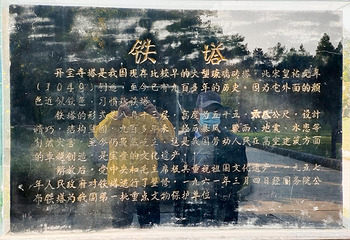 铁塔
开宝寺塔是我国现存比较早的大型琉璃砖塔。北宋皇祐元年
(1049)创建，至今已有九百多年的历史。因为它外面的颜
色近似铁色，习惯称铁塔。
铁塔的形式是八角十三层，高度为五十五·公尺，设计
精巧，结构坚固，九百多年来，历暴风、骤雨、地震、水患等
自然灾害，至今仍是我国劳动人民在高空建筑方面
的卓越创造，是宝贵的文化遗产。
解放后，党中央和毛主席极其重视祖国文化遗产，一九五七
年人民政府对铁塔进行了整修，一九六一年三月四日经国务院公
布铁塔为我国第一批重点文物保护单位。